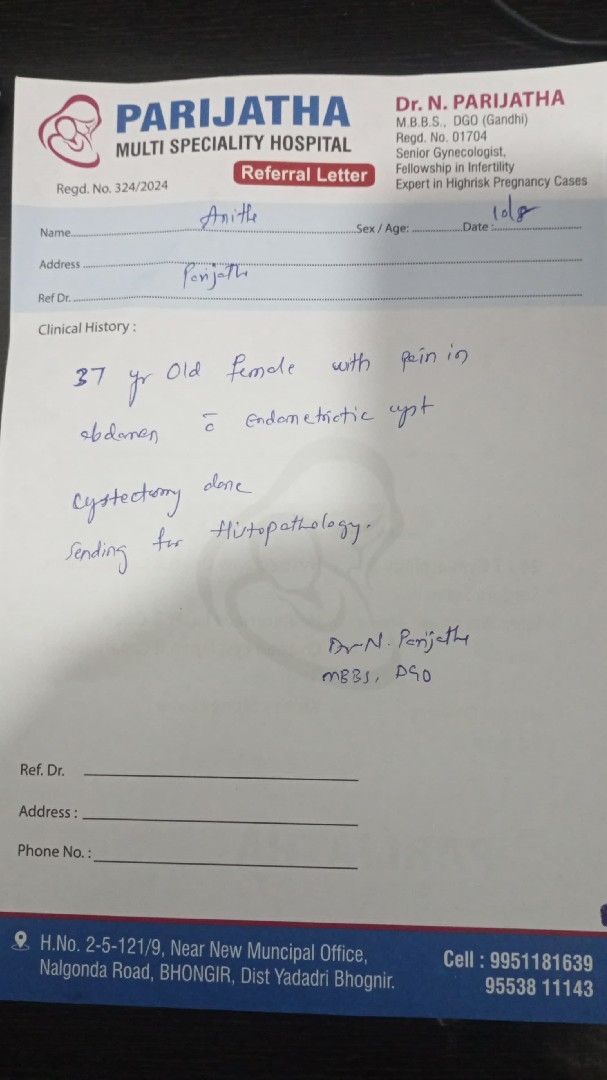 PARIJATHA
MULTI SPECIALITY HOSPITAL
Regd. No. 324/2024
Referral Letter
Dr. N. PARIJATHA
M.B.B.S., DGO (Gandhi)
Regd. No. 01704
Senior Gynecologist,
Fellowship in Infertility
Expert in Highrisk Pregnancy Cases
Name Anitha Sex / Age: Date : 10/8
Address
Ref Dr. Parijatha
Clinical History :
37 yr Old female with pain in
abdomen c̄ Endometriotic cyst
Cystectomy done
Sending for Histopathology.
Dr N. Parijatha
MBBS, DGO
Ref. Dr.
Address :
Phone No. :
H.No. 2-5-121/9, Near New Muncipal Office,
Nalgonda Road, BHONGIR, Dist Yadadri Bhognir.
Cell : 9951181639
95538 11143